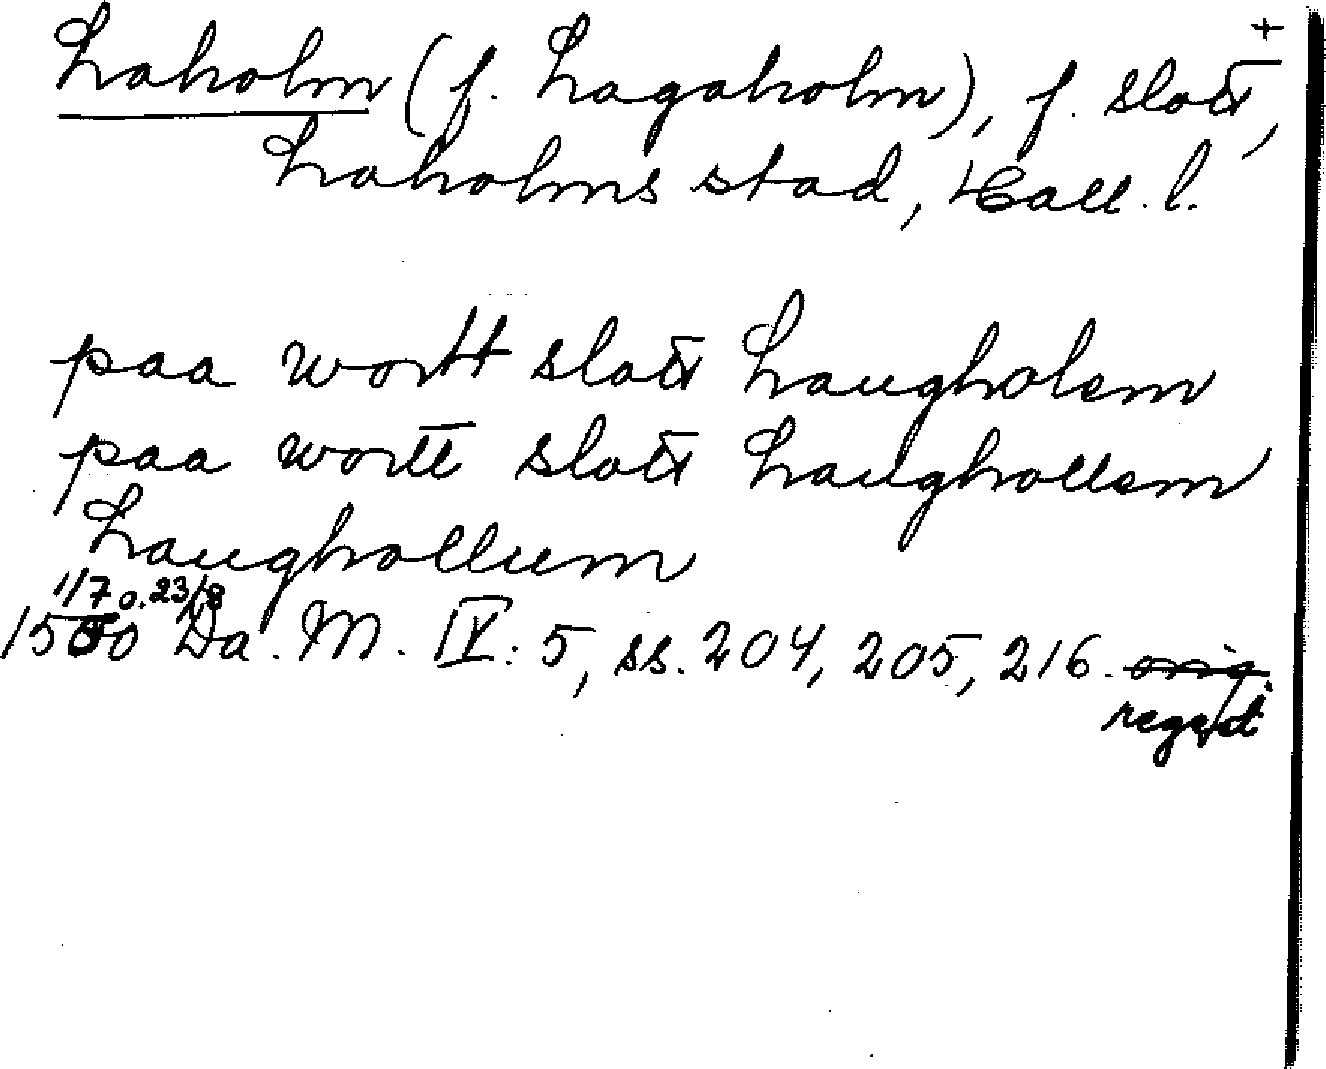 +
Laholm (f. Lagaholm), f. slott,
Laholms stad, Hall. l.
paa wortt slott Laugholem
paa wortt slott Laughollem
Laughollum
1/7 o. 23/8
1500 Da. M. IV: 5, ss. 204, 205, 216. orig.